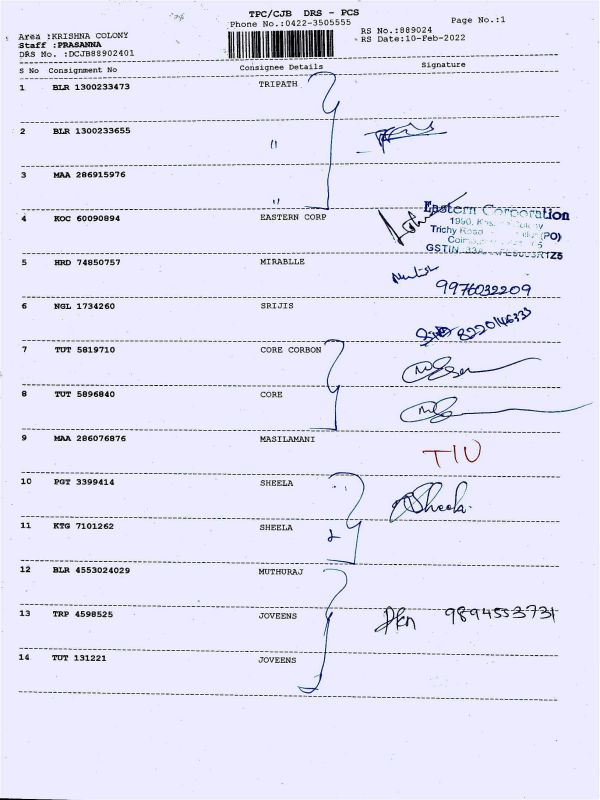 TPC/CJB DRS - PCS
Phone No.:0422-3505555
Page No.:1
Area :KRISHNA COLONY
RS No.:889024
Staff :PRASANNA
RS Date:10-Feb-2022
DRS No. :DCJB88902401
S No Consignment No Consignee Details Signature
1 BLR 1300233473 TRIPATH
2 BLR 1300233655 "
3 MAA 286915976 "
4 KOC 60090894 EASTERN CORP
Eastern Corporation
Trichy Road (PO)
GSTIN
5 HRD 74850757 MIRABLLE
9976032209
6 NGL 1734260 SRIJIS
8220146333
7 TUT 5819710 CORE CORBON
8 TUT 5896840 CORE
9 MAA 286076876 MASILAMANI
10 PGT 3399414 SHEELA Sheela
11 KTG 7101262 SHEELA
12 BLR 4553024029 MUTHURAJ
13 TRP 4598525 JOVEENS 9894553731
14 TUT 131221 JOVEENS